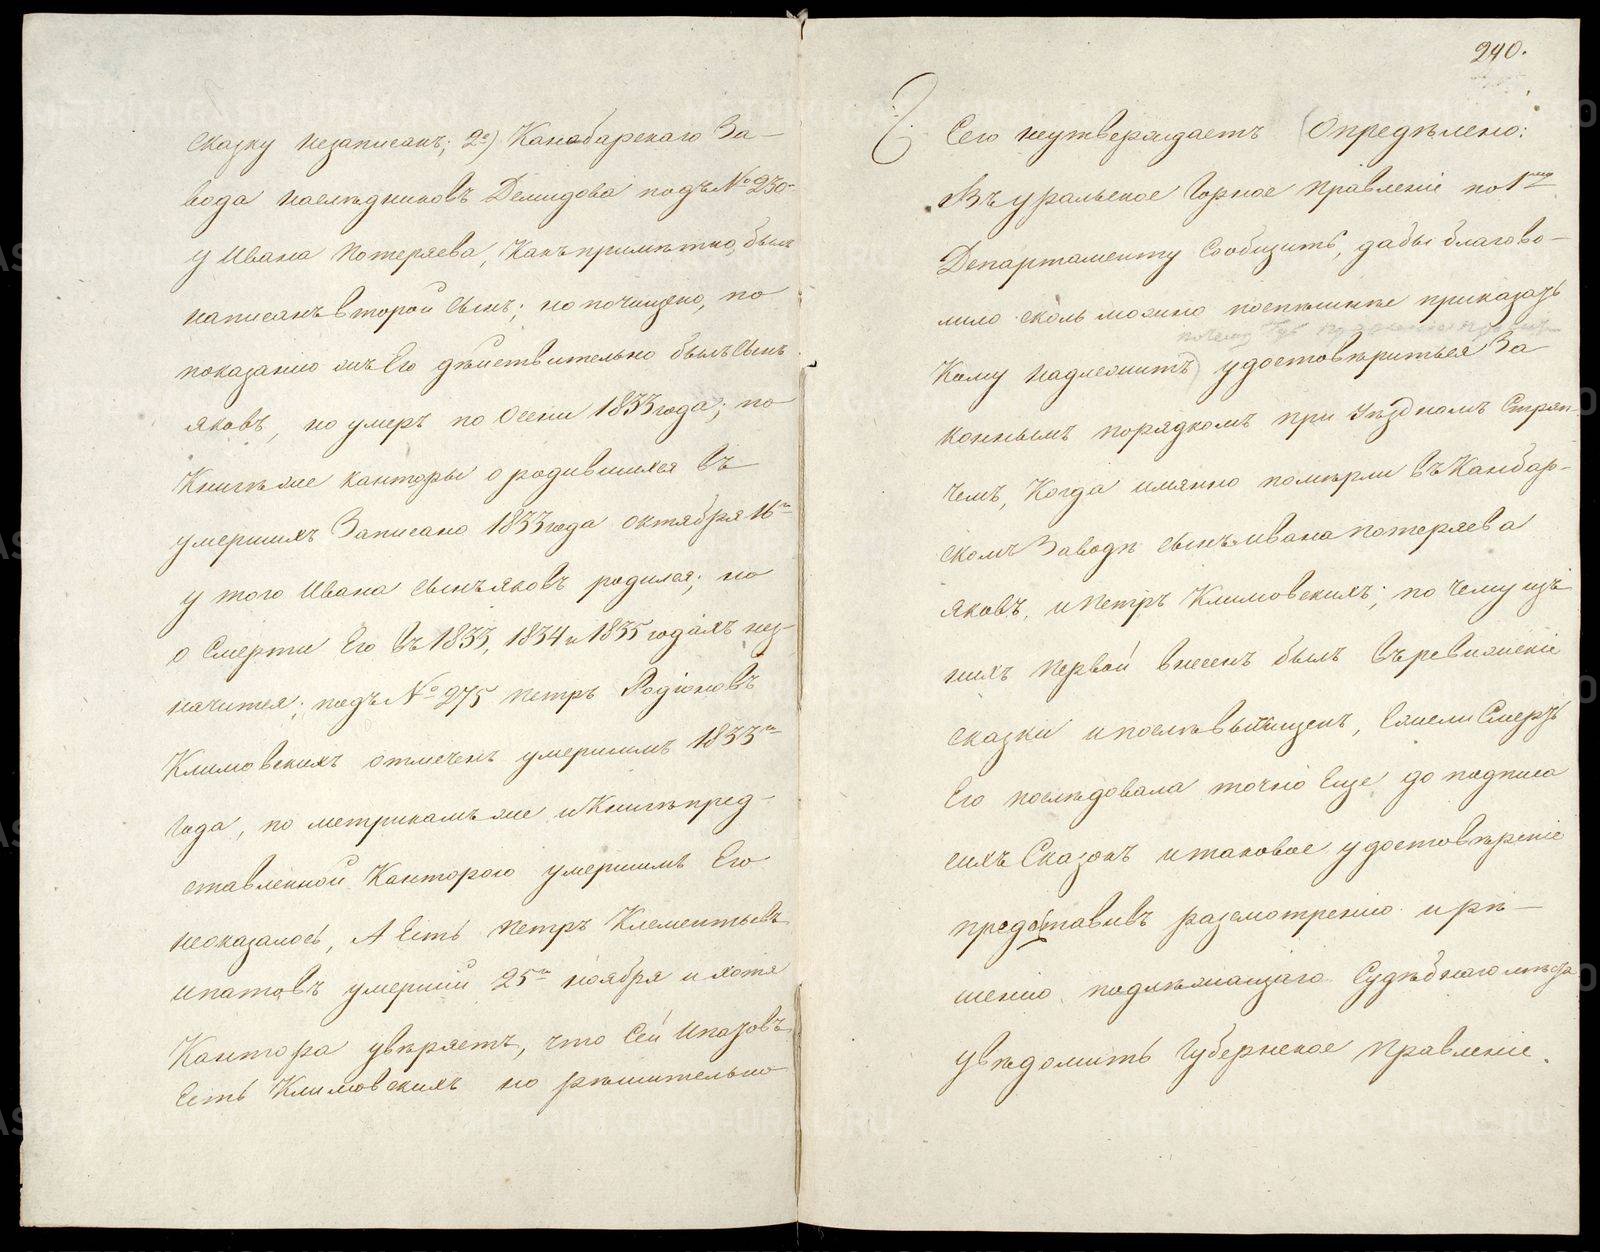 сказку незаписанъ; 2е) Камбарскаго За-
вода наслѣдниковъ Демидова подъ № 230
у Ивана Потеряева, Какъ примѣтно, былъ
написанъ второй сынъ; но почищено, по
показанію жъ Его дѣйствительно былъ сынъ
яковъ, но умеръ по осени 1833 года; по
Книгѣ же канторы о родившихся въ
умершихъ Записано 1833 года октября 16го
у того Ивана сынъ яковъ родился; но
о Смерти Его въ 1833, 1834 и 1835 годахъ нез-
начится; подъ № 275 петръ Родіоновъ
Климовскихъ отмеченъ умершимъ 1833го
Года, по метрикамъ же и Книгѣ пред-
ставленной Канторою умершимъ Его
неоказалось, А Есть петръ Клементьевъ
ипатовъ умершій 25го ноября и хотя
Кантора увѣряетъ, что Сей Ипатовъ
Есть Климовскихъ но рѣшительно
240.
Сего неутверждаетъ (Опредѣлено:
Въ уральское Горное правленіе по 1му
Департаменту Сообщить, дабы благово-
лило сколь можно поспѣшнѣе приказать
Кому надлежитъ) удостовѣриться За
коннымъ порядкомъ при Уѣздномъ Стряп-
чемъ, Когда имянно помѣрли въ Камбар-
скомъ Заводѣ сынъ ивана потеряева
яковъ, и петръ Климовскихъ; по чему изъ
нихъ первой внесенъ былъ въ ревижскіе
сказки и послѣ вычищенъ, Ежели Смерть
Его послѣдовала точно Еще до подписа
сихъ Сказокъ и таковое удостовѣреніе
предоставивъ разсмотренію и рѣ-
шенію подлежащаго Судебнаго мѣста
увѣдомить Губернское правленіе.